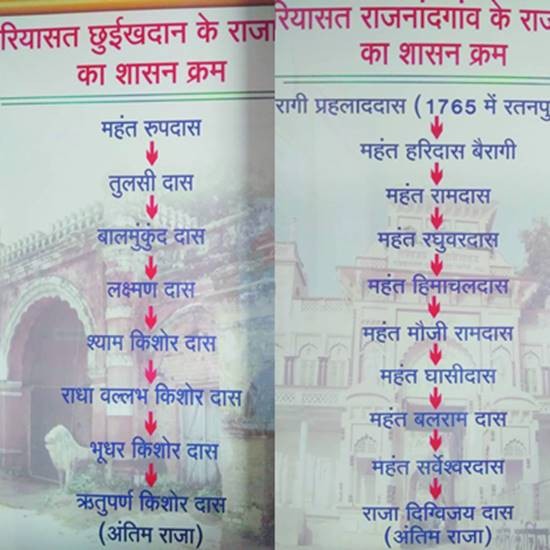 रियासत छुईखदान के राजा
का शासन क्रम
महंत रुपदास
तुलसी दास
बालमुंकुंद दास
लक्ष्मण दास
श्याम किशोर दास
राधा वल्लभ किशोर दास
भूधर किशोर दास
ऋतुपर्ण किशोर दास
(अंतिम राजा)
रियासत राजनांदगाँव के
का शासन क्रम
प्रहलाददास (1765 में
महंत हरिदास बैरागी
महंत रामदास
महंत रघुवरदास
महंत हिमाचलदास
महंत मौजी रामदास
महंत घासीदास
महंत बलराम दास
महंत सर्वेश्वरदास
राजा दिग्विजय दास
(अंतिम राजा)